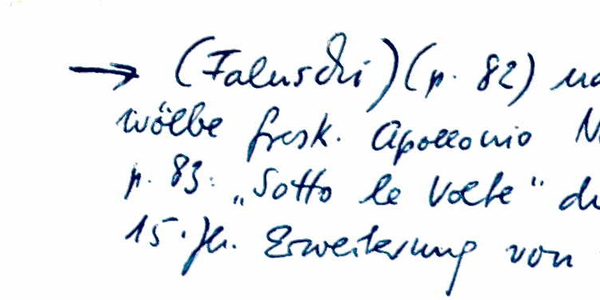 → (Faluschi) (p. 82)
wölbe fresk. Apollonio
p. 83: „Sotto le Volte"
15. Jh. Erweiterung von